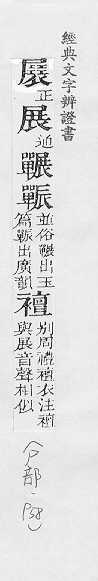 經典文字辨證書
正展囅辴並俗囅出玉篇辴出廣韻襢別周禮襢衣注襢與展音聲相似
(尸部·P38)